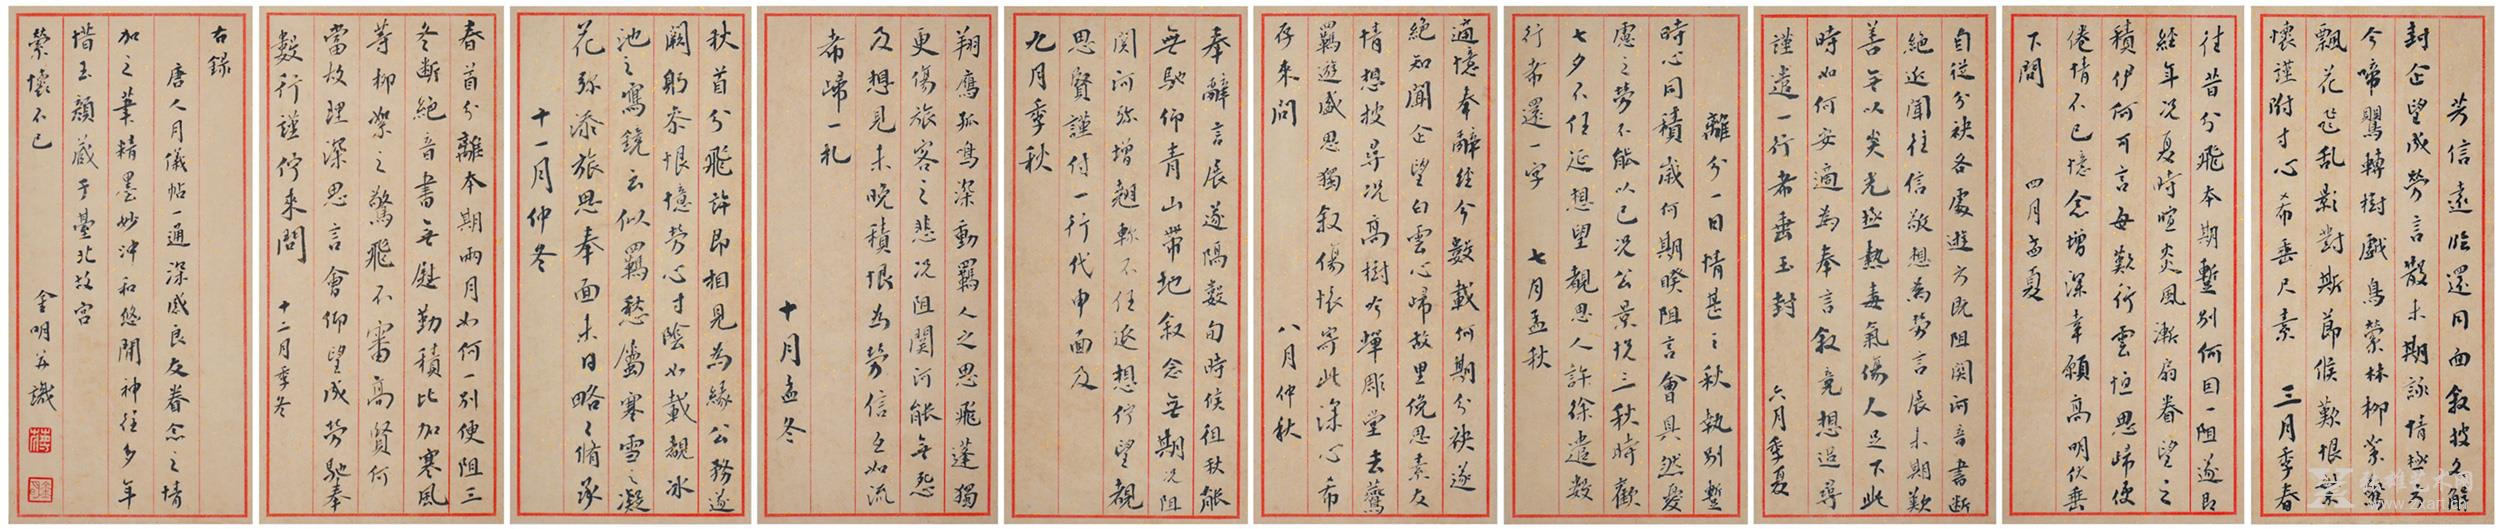 芳信遠臨還同面叙披文解
封企望成勞言散未期詠情極不
今啼鸎轉樹戲鳥縈林柳絮驚
飄花飛乱影對斯節候歎恨縈
懷謹附寸心希垂尺素　三月季春
往昔分飛本期蹔別何図一阻遂即
經年况夏時喧炎風漸扇眷望之
積伊何可言每歎行雲恒思歸便
倦情不已憶念增深幸願高明伏垂
下問　四月孟夏
自從分袂各處遊方既阻関河音書断
絕近闻往信敬想為勞言展未期歎
善無以炎光極熱毒氣傷人足下此
時如何安適為奉言叙竟想追尋
謹遣一行希垂玉封　六月季夏
離分一日情甚三秋執別蹔
時心同積歲何期暌阻言會具然憂
慮之勞不能以已况公景悦三秋時歡
七夕不任延想望覩思人許徐遣数
行希還一字　七月孟秋
適憶奉辭經今數載何期分袂遂
絕知聞企望白雲心歸故里俛思素友
情想披尋况高樹吟蟬彫堂去鷰
羈遊感思獨叙傷悵寄此深心希
存来問　八月仲秋
奉辭言展遂隔數旬時候徂秋能
無馳仰青山帶地叙念無期况阻
関河弥增翹軫不任返想佇望覩
思賢謹付一行代申面及
九月季秋
翔鷹孤鳴深動羈人之思飛蓬獨
更傷旅客之悲况阻関河能無愁
及想見未晚積恨為勞信至如流
希歸一札
十月孟冬
秋首分飛許即相見為緣公務遂
阙躬参恨憶勞心寸陰如載覩冰
池之寫鏡云似羈愁屬寒雪之凝
花弥添旅思奉面未日略々脩承
十一月仲冬
春首分離本期兩月如何一別便阻三
冬断絕音書無慰勤積比加寒風
等柳絮之驚飛不審高賢何
當故理深思言會仰望成勞馳奉
數行謹佇來問　十二月季冬
右錄
唐人月儀帖一通深感良友眷念之情
加之筆精墨妙冲和悠閒神往多年
惜玉顏藏于臺北故宫
縈懷不已　金明並識